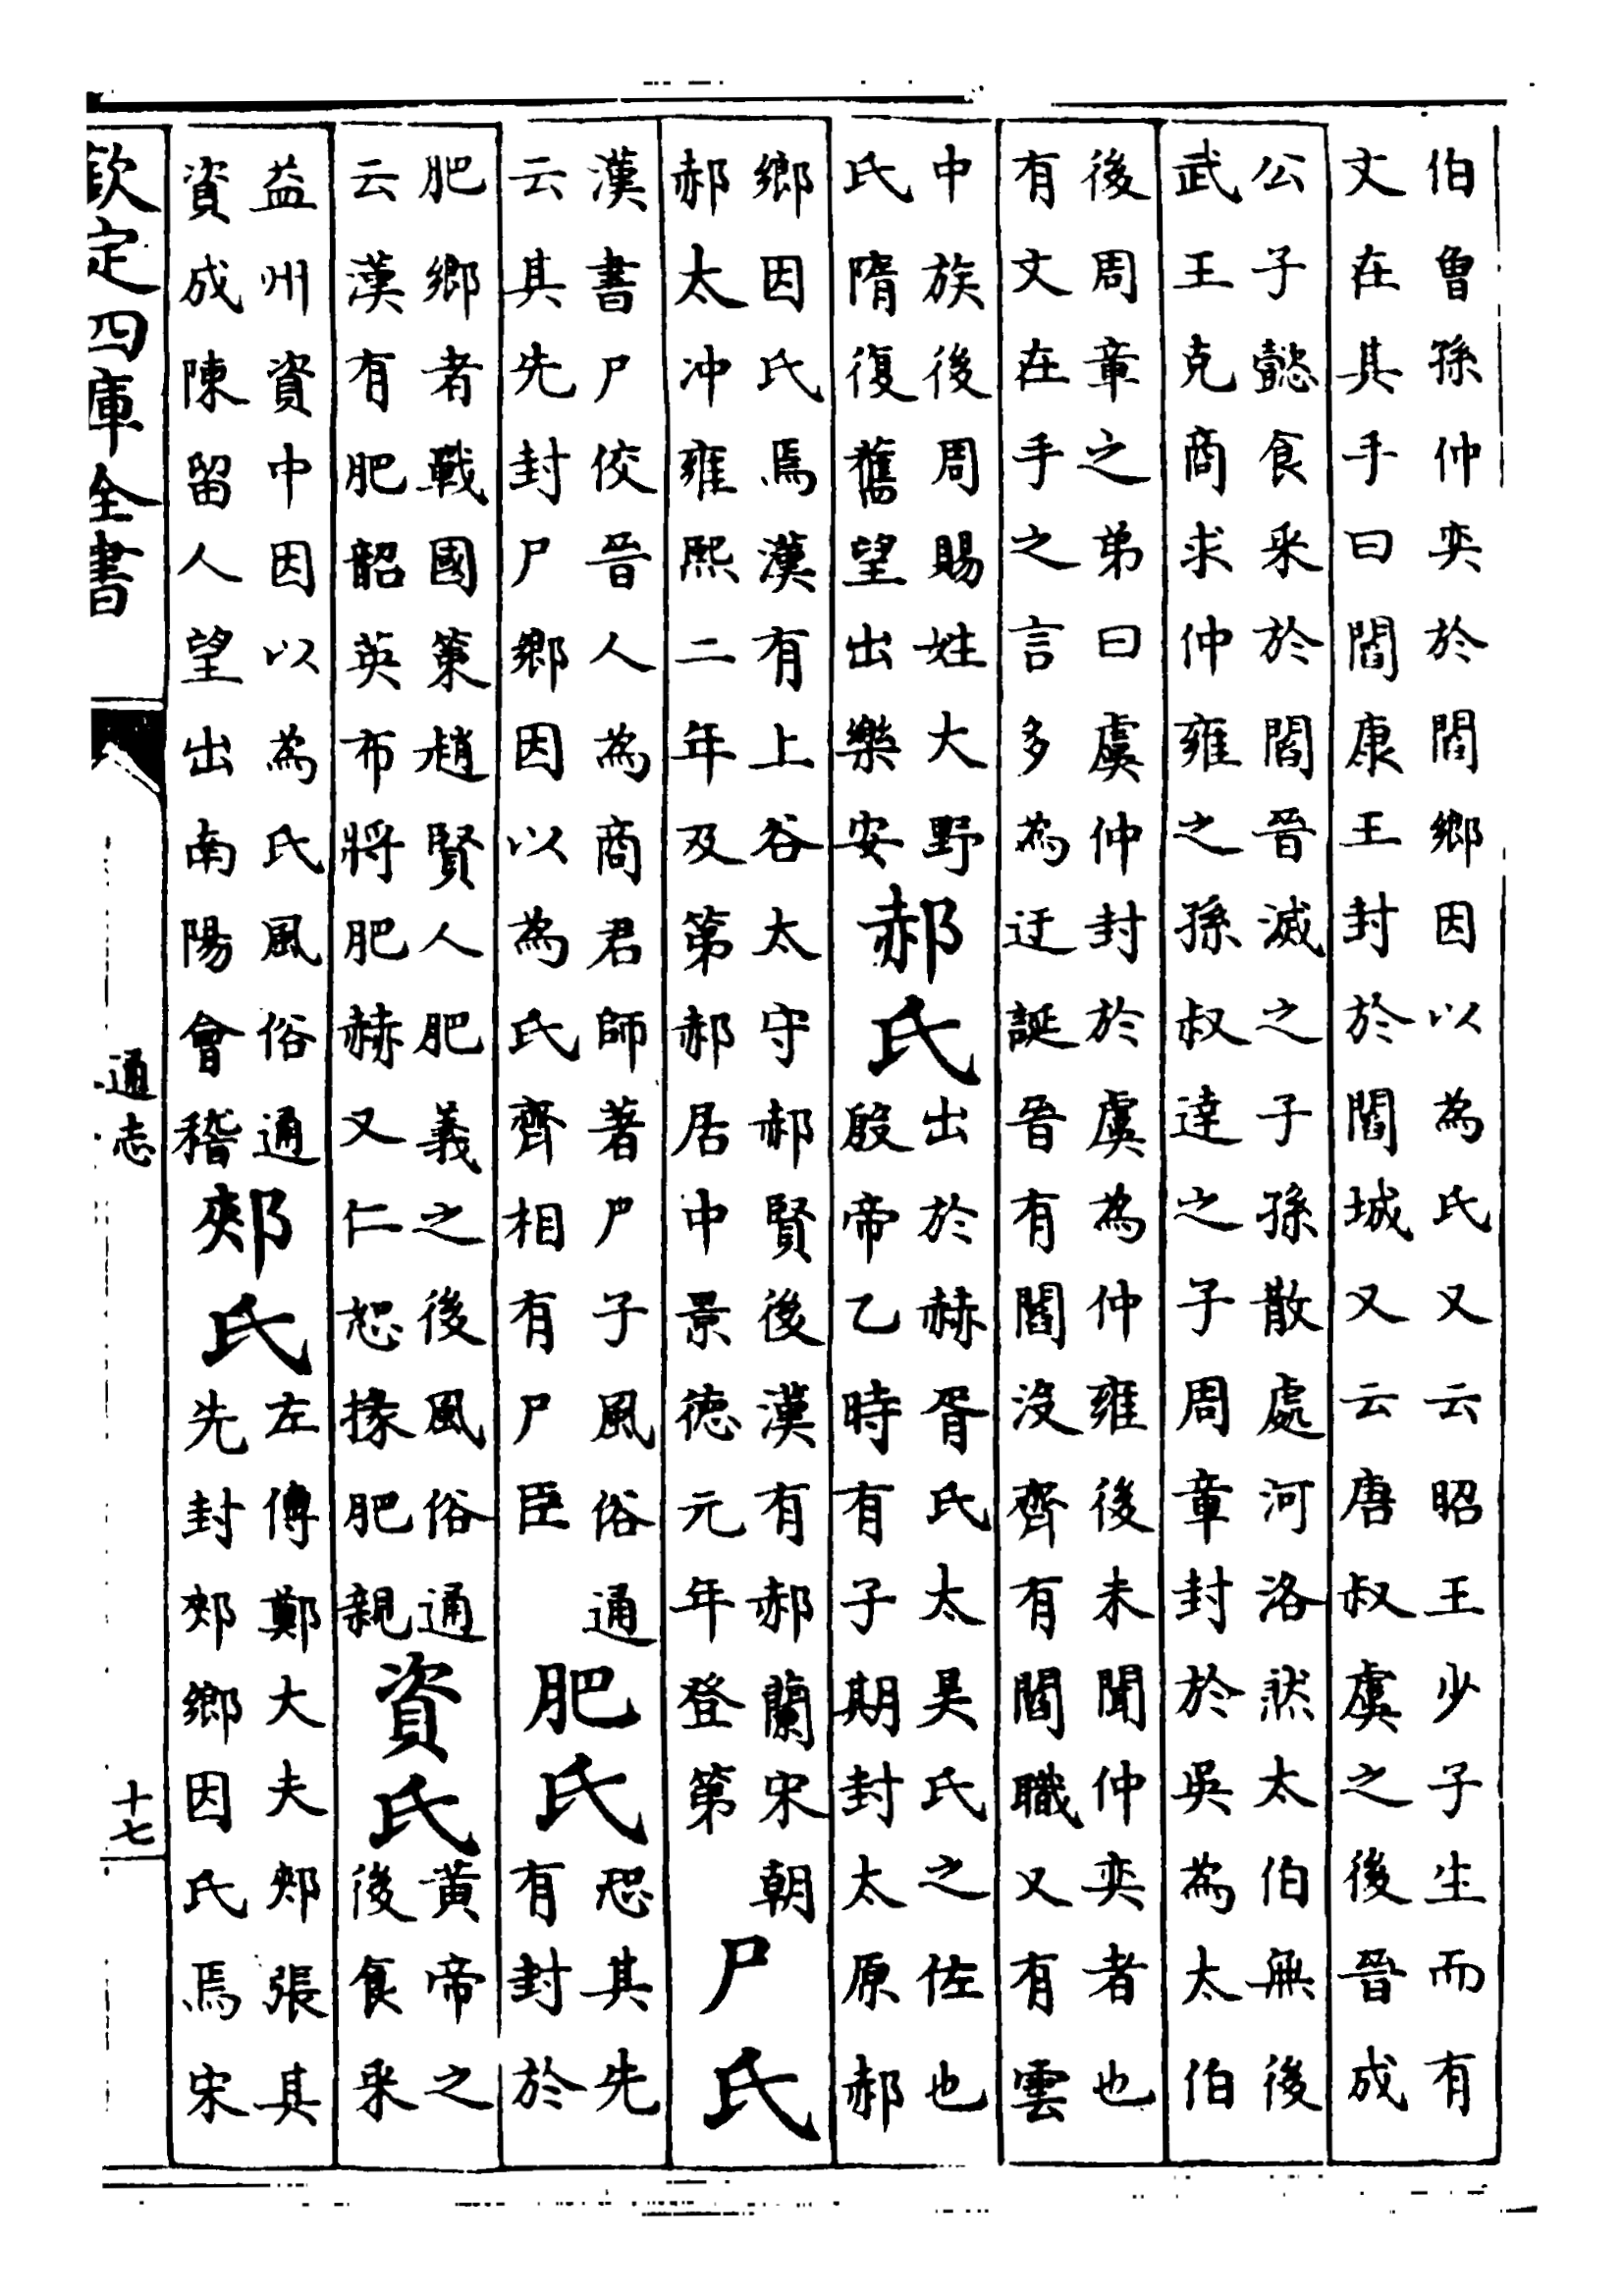 伯曾孫仲奕於閻鄉因以為氏又云昭王少子生而有
文在其手曰閻康王封於閻城又云唐叔虞之後晉成
公子懿食采於閻晉滅之子孫散處河洛然太伯無後
武王克商求仲雍之孫叔達之子周章封於吳為太伯
後周章之弟曰虞仲封於虞為仲雍後未聞仲奕者也
有文在手之言多為迂誕晉有閻沒齊有閻職又有雲
中族後周賜姓大野
氏隋復舊望出樂安
郝氏
出於赫胥氏太昊氏之佐也
殷帝乙時有子期封太原郝
鄉因氏焉漢有上谷太守郝賢後漢有郝蘭宋朝
郝太冲雍熙二年及第郝居中景徳元年登第
尸氏
漢書尸佼晉人為商君師著尸子風俗通
云其先封尸鄉因以為氏齊相有尸臣
肥氏
恐其先
有封於
肥鄉者戰國策趙賢人肥義之後風俗通
云漢有肥韶英布將肥赫又仁恕掾肥親
資氏
黄帝之
後食采
益州資中因以為氏風俗通
資成陳留人望出南陽會稽
郟氏
左傳鄭大夫郟張其
先封郟鄉因氏焉宋
欽定四庫全書
通志
十七